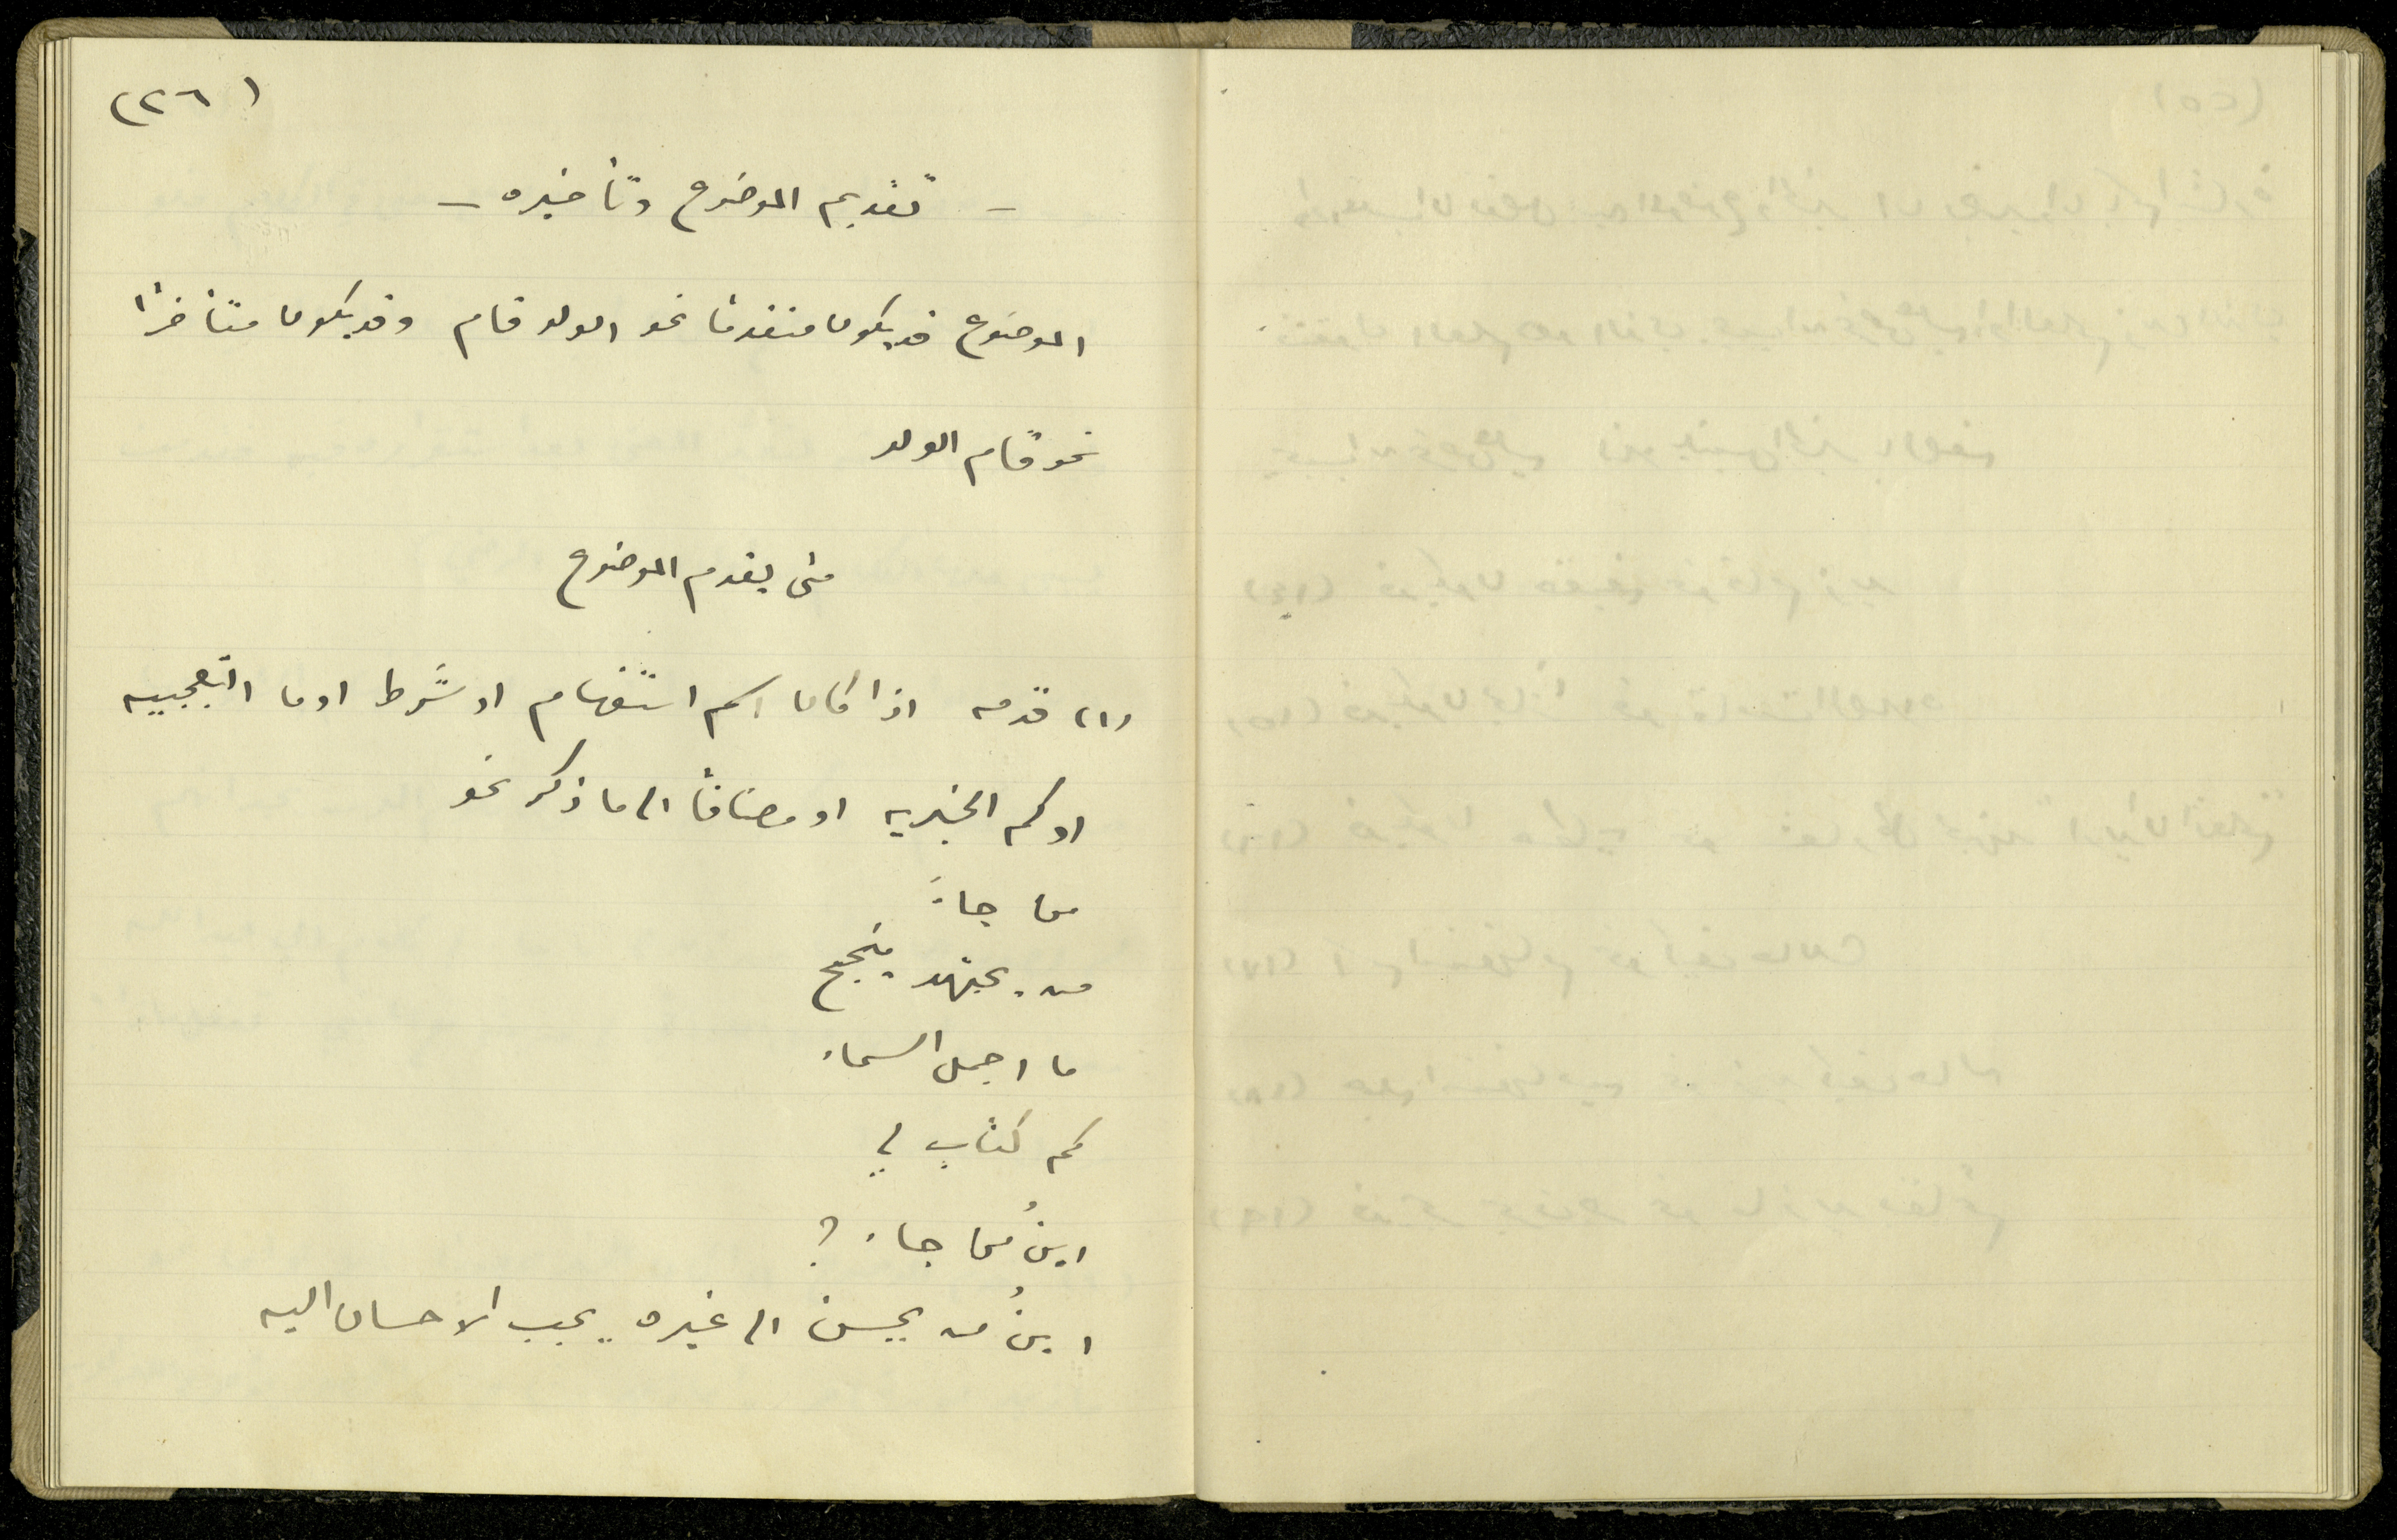 (٢٦)
- تقديم الموضوع وتأخيره -
الموضوع قد يكون متقدماً نحو الولد قام وقد يكون متأخراً
نحو قام الولد
متى يقدم الموضوع
(١) قدمه اذا كان اسم استفهام او شرط او ما التعجبيه
او كم الخبريه او مضافاً الى ما ذكر نحو
من جاءَ
من يجتهد ينجح
ما اجمل السماء
كم كتابٍ لي
ابنُ من جاء ؟
ابنُ من يحسن الى غيره يجب الاحسان اليه